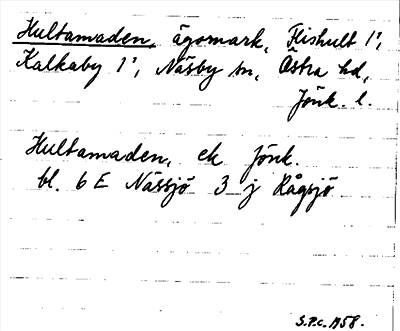 Hultamaden, ägomark, Flishult 1¹,
Kalkaby 1¹, Näsby sn, Östra hd,
Jönk. l.
Hultamaden, ek Jönk.
bl. 6 E Nässjö 3 j Rågsjö
S.P.C. 1958.